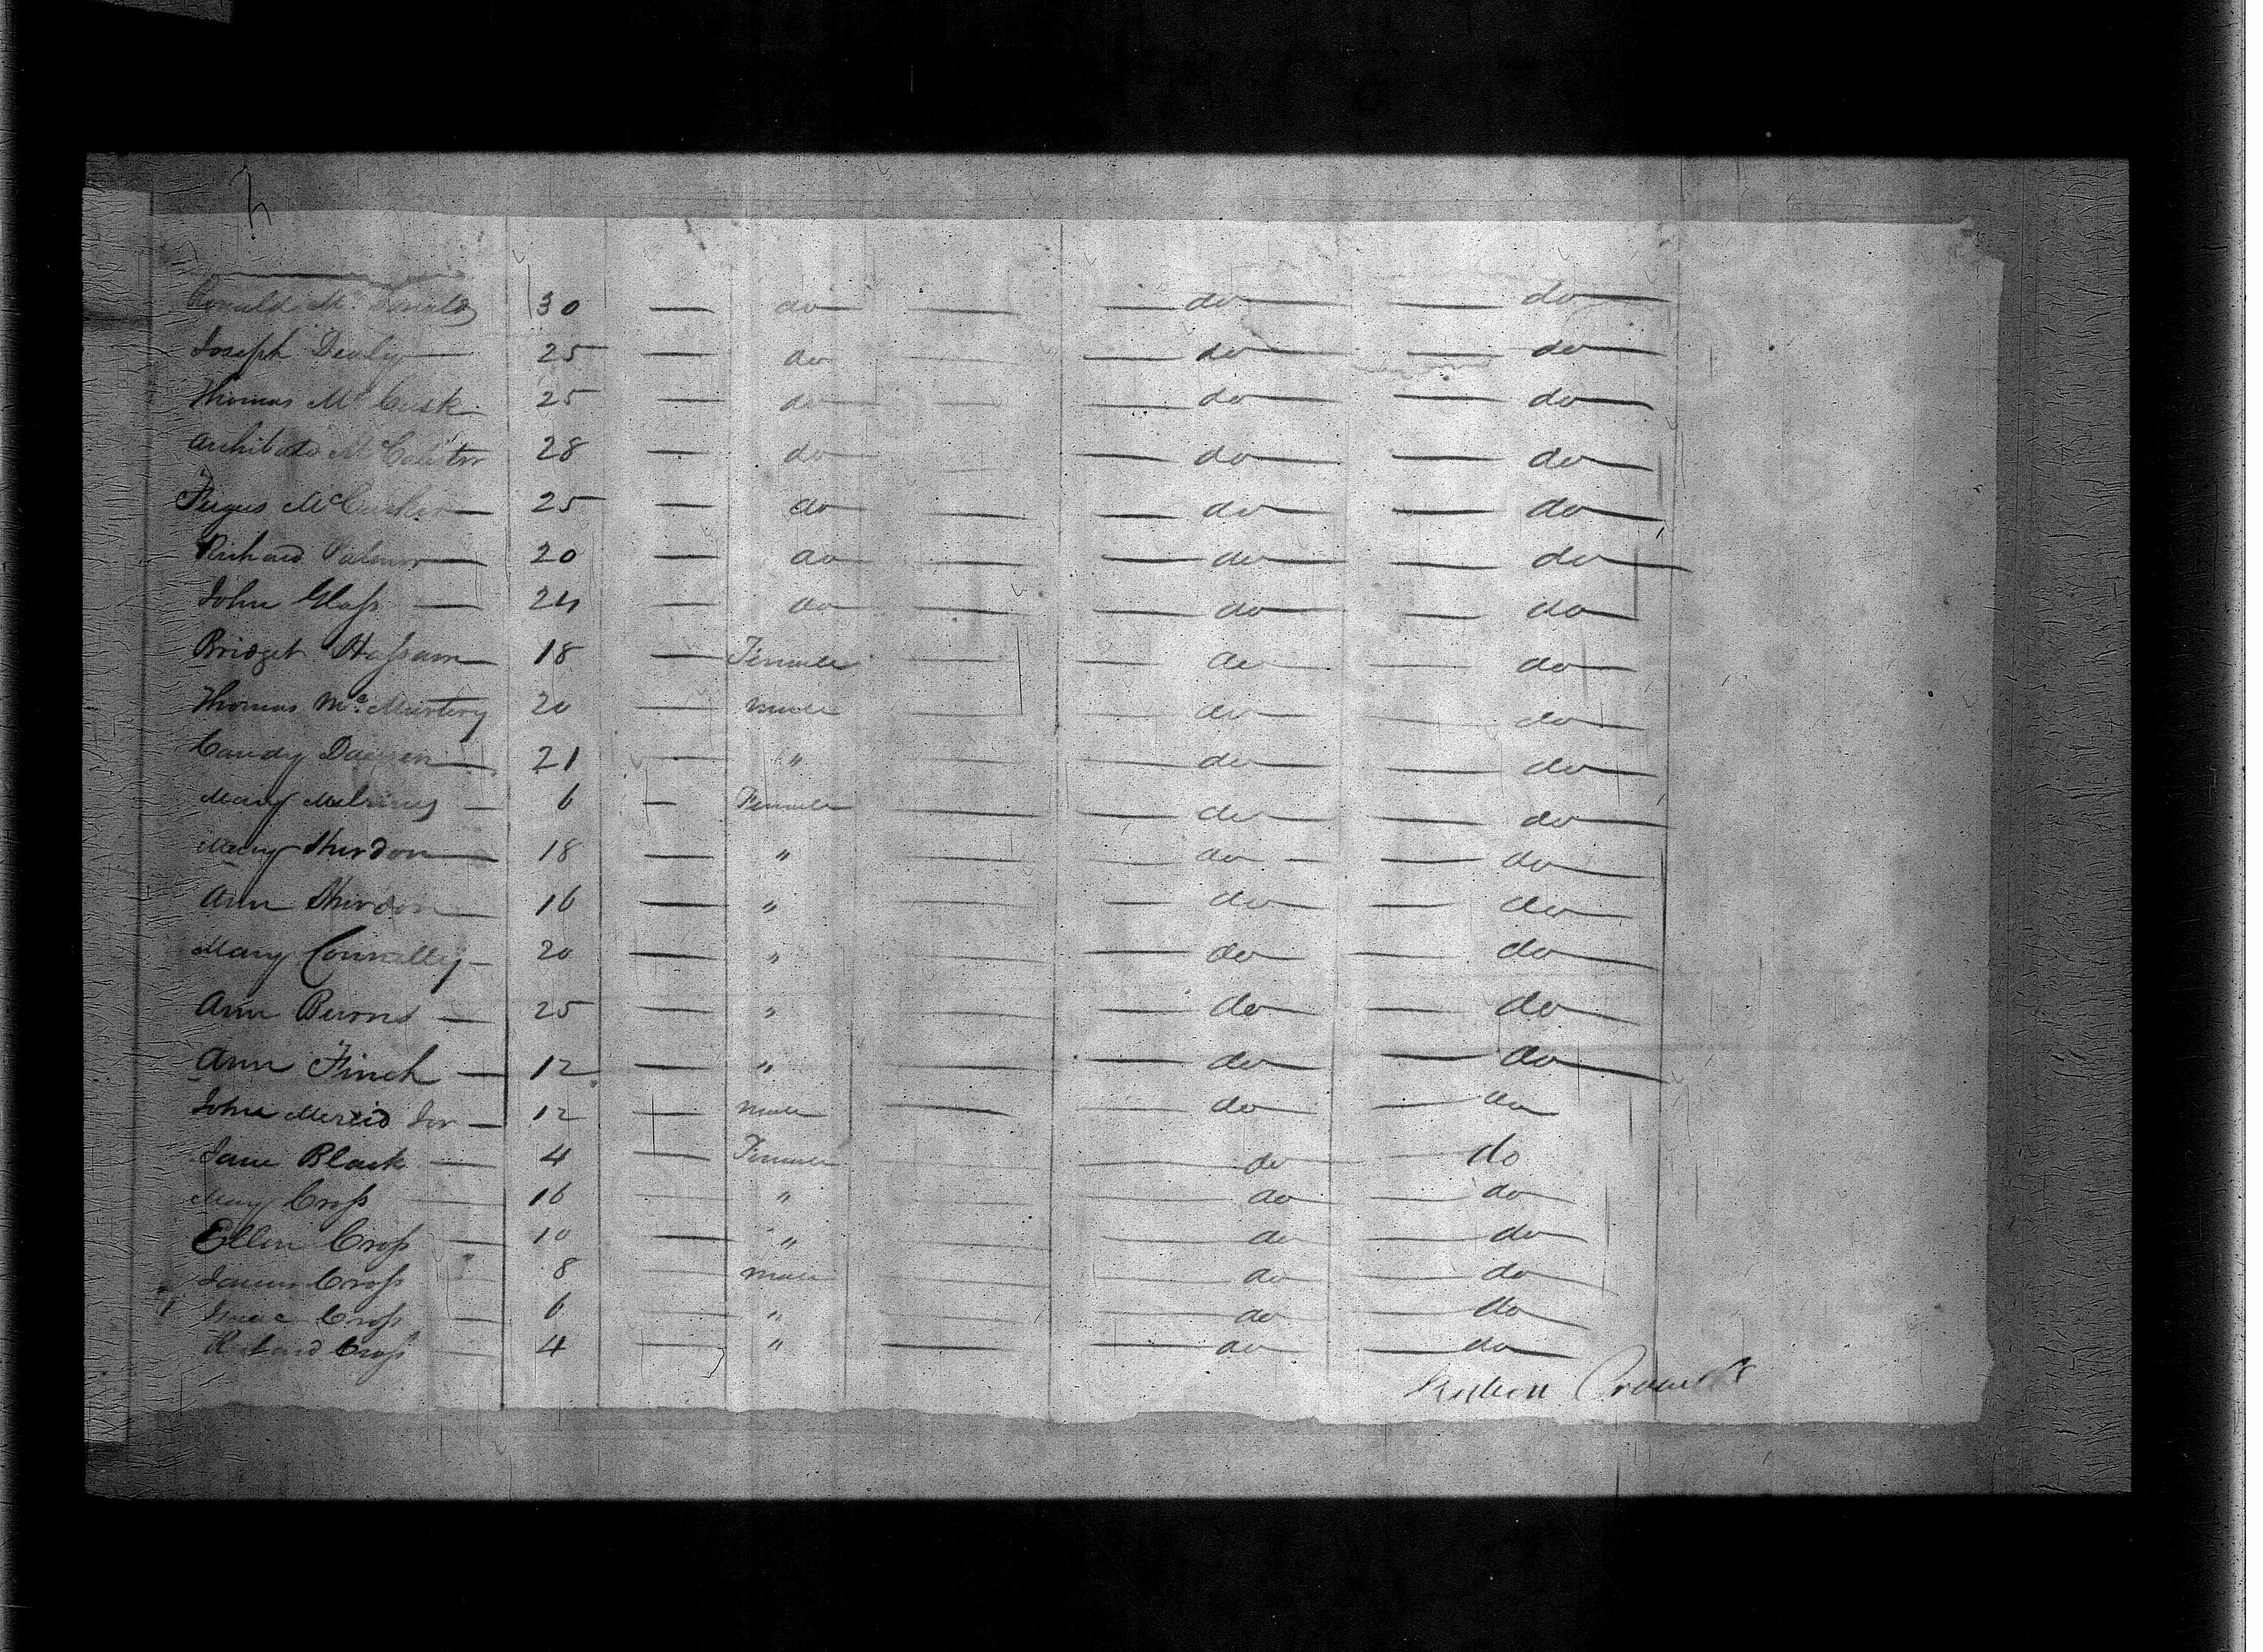 Ronald McDonald 30 — do — do — do
Joseph Dealy — 25 — do — do — do
Thomas McCusk 25 — do — do — do
Archibald 28 — do — do — do
Fergus McCusker — 25 — do — do — do
Richard Palmer — 20 — do — do — do
John Glass — 24 — do — do — do
Bridget Hassam — 18 — Female — do — do
Thomas McMurtery 20 — male — do — do
Candy — 21 — " — do — do
Mary — 6 — Female — do — do
Mary — 18 — " — do — do
Ann — 16 — " — do — do
Mary Connally — 20 — " — do — do
Ann Burns — 25 — " — do — do
Ann Finch — 12 — " — do — do
John — 12 — male — do — do
Jane Black — 4 — Female — do — do
Mary Cross — 16 — " — do — do
Ellen Cross — 10 — " — do — do
James Cross — 8 — male — do — do
Isaac Cross — 6 — " — do — do
Richard Cross — 4 — " — do — do